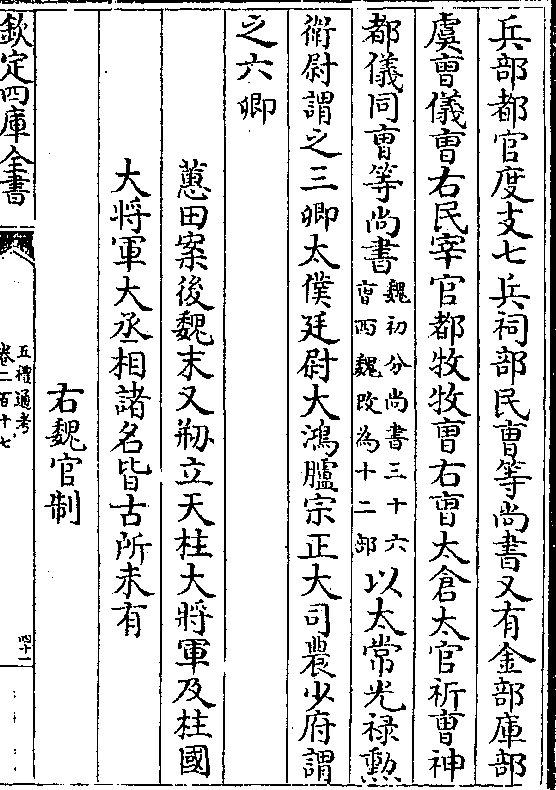 兵部都官度支七兵祠部民曺等尚書又有金部庫部
虞曺儀曺右民宰官都牧牧曺右曺太倉太官祈曺神
都儀同曺等尚書魏初分尚書三十六曺西魏改為十二部以太常光禄勲
衛尉謂之三卿太僕廷尉大鴻臚宗正大司農少府謂
之六卿
蕙田案後魏末又剏立天柱大將軍及柱國
大將軍大丞相諸名皆古所未有
右魏官制
欽定四庫全書
五禮通考
卷二百十七
四十一